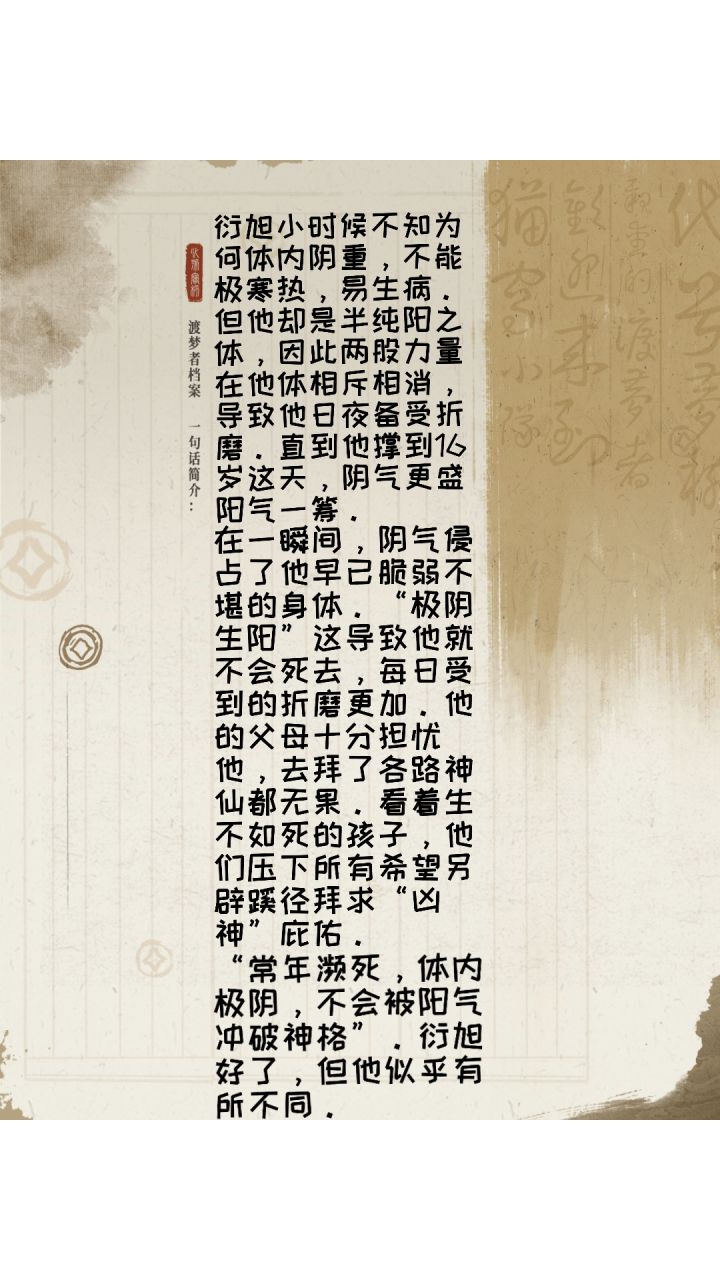 渡梦者档案 一句话简介：
衍旭小时候不知为
何体内阴重，不能
极寒热，易生病.
但他却是半纯阳之
体，因此两股力量
在他体相斥相消，
导致他日夜备受折
磨.直到他撑到16
岁这天，阴气更盛
阳气一筹.
在一瞬间，阴气侵
占了他早已脆弱不
堪的身体.“极阴
生阳”这导致他就
不会死去，每日受
到的折磨更加.他
的父母十分担忧
他，去拜了各路神
仙都无果.看着生
不如死的孩子，他
们压下所有希望另
辟蹊径拜求“凶
神”庇佑.
“常年濒死，体内
极阴，不会被阳气
冲破神格”.衍旭
好了，但他似乎有
所不同.